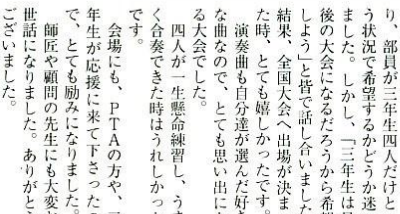 り、部員が三年生四人だけと
う状況で希望するかどうか迷
ました。しかし、「三年生は最
後の大会になるだろうから希
しよう」と皆で話し合いました
結果、全国大会へ出場が決ま
た時、とても嬉しかったです。
演奏曲も自分達が選んだ好き
な曲なので、とても思い出に
る大会でした。
四人が一生懸命練習し、うま
く合奏できた時はうれしかっ
です。
会場にも、PTAの方や、三
年生が応援に来て下さったの
で、とても励みになりました。
師匠や顧問の先生にも大変
世話になりました。ありがとう
ございました。